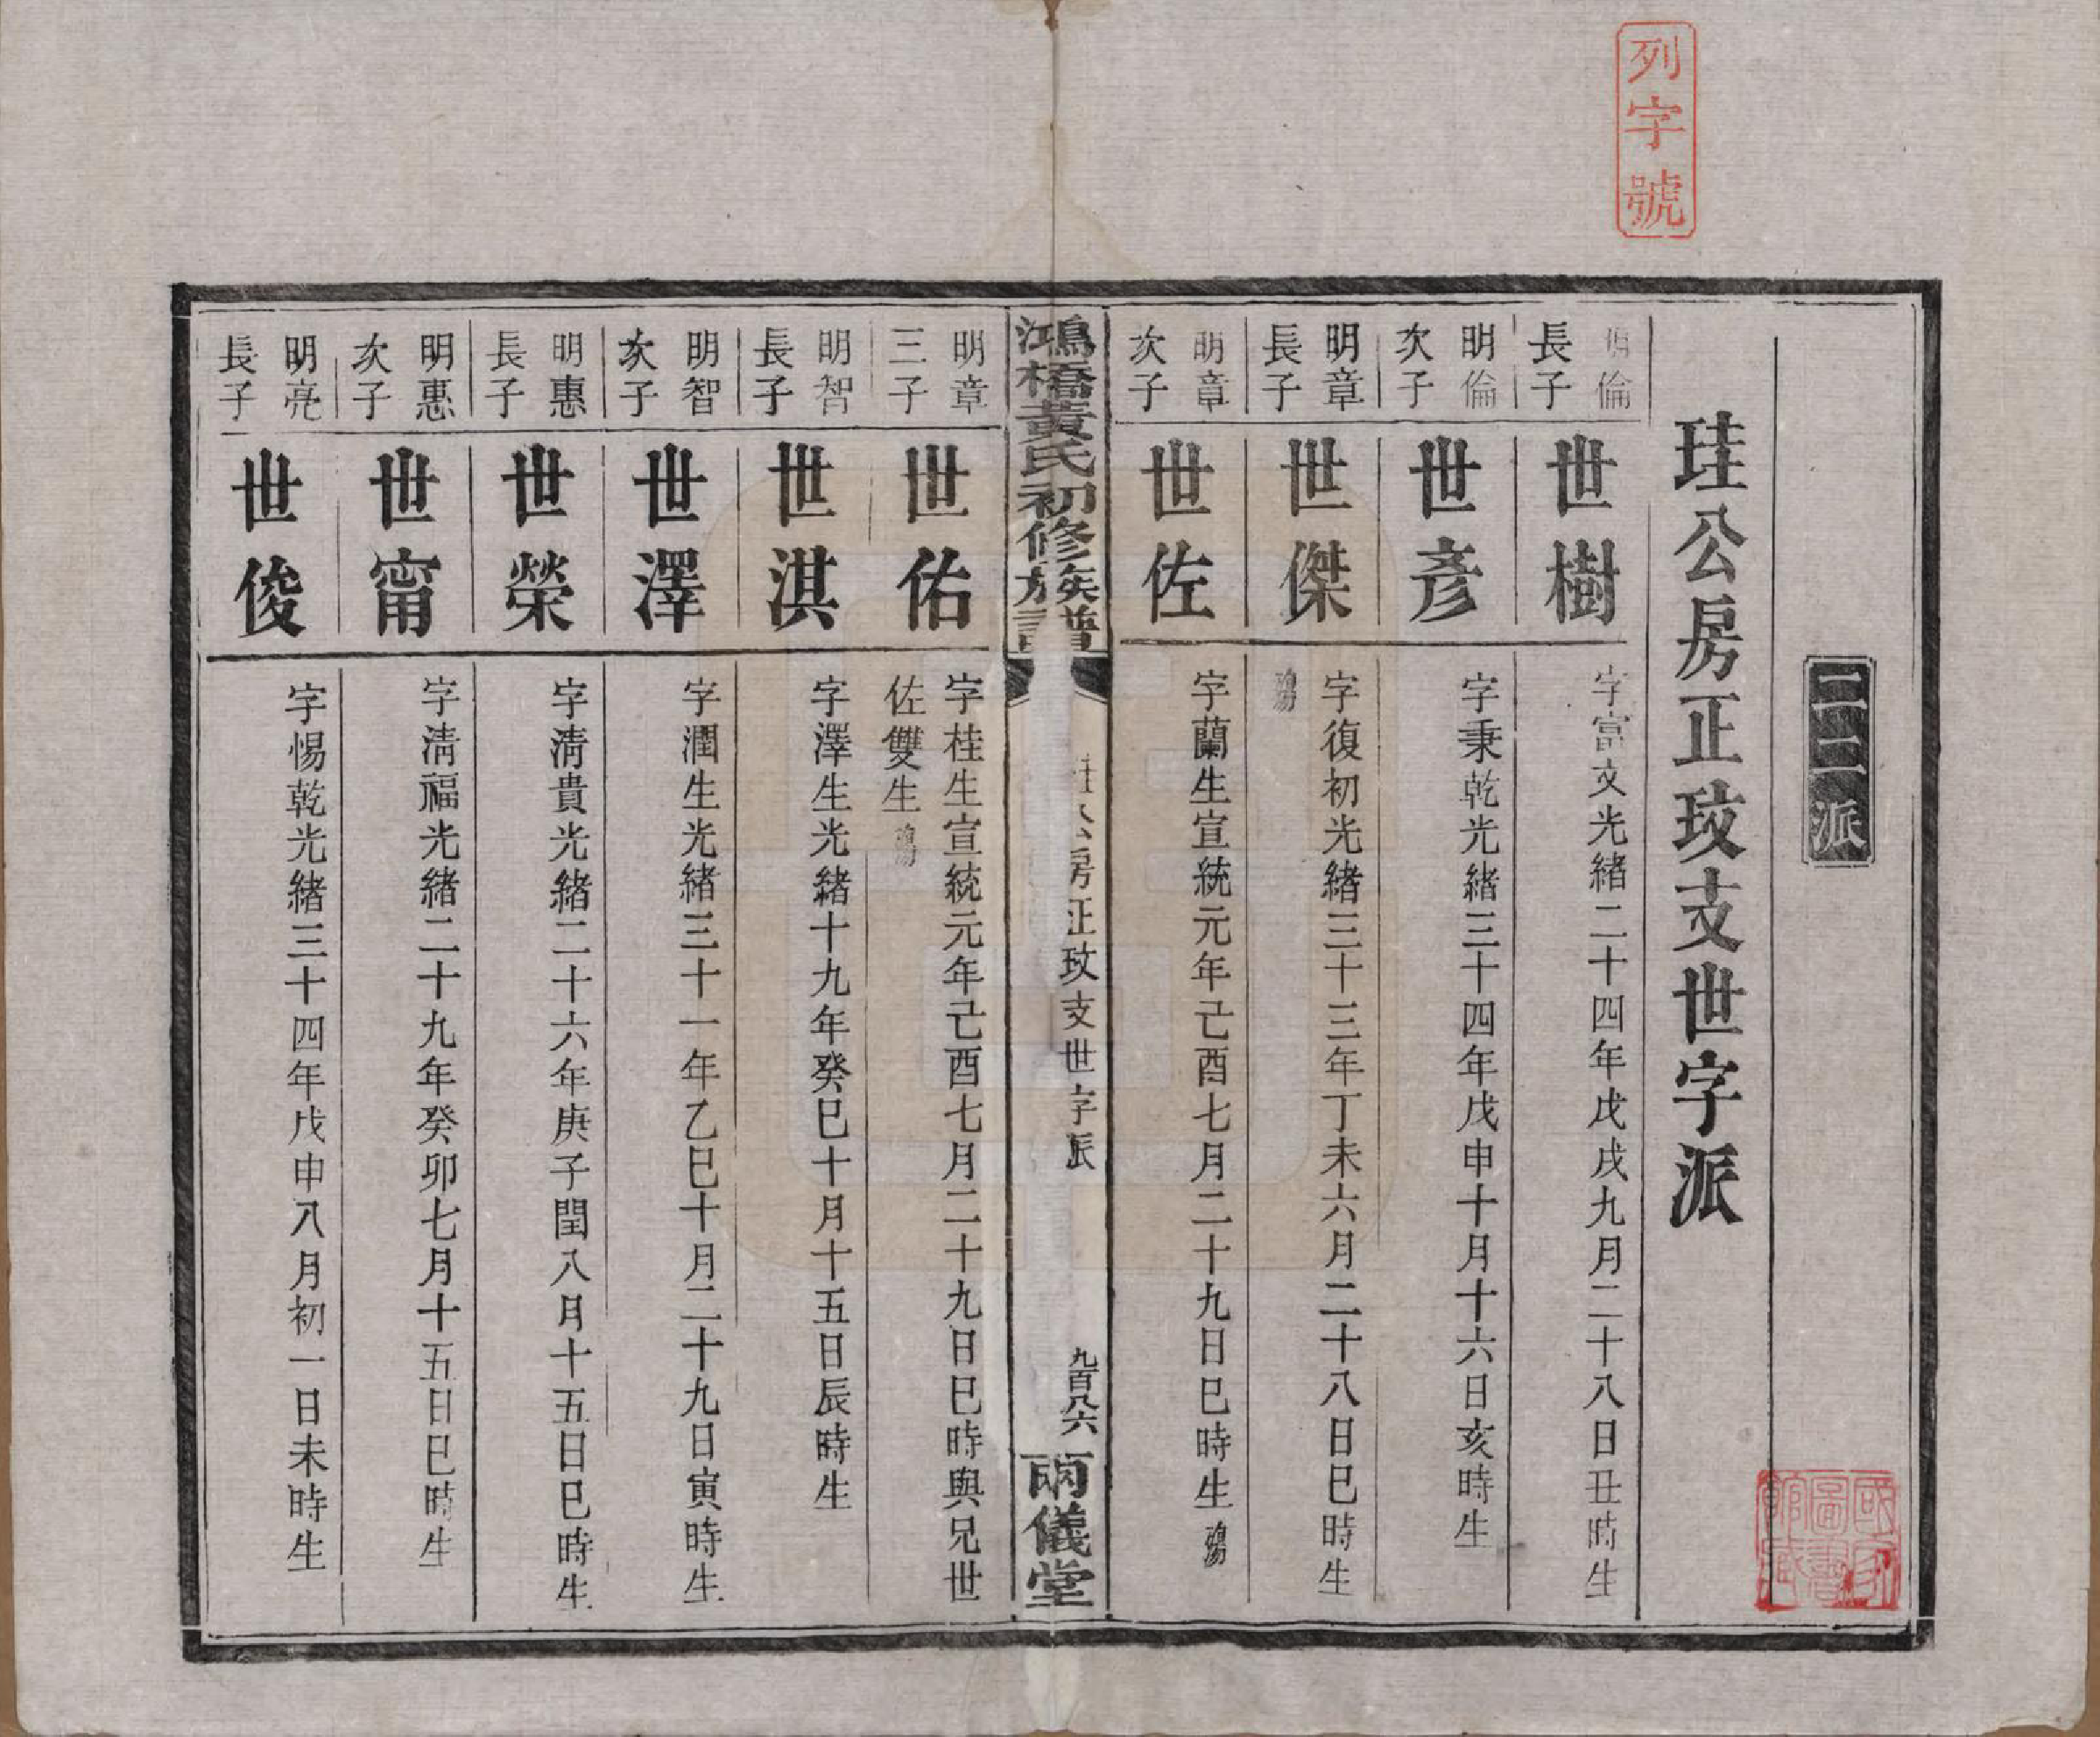 列字號
二二派
珪公房正玟支世字派
明倫
長子
世樹
字富文光緒二十四年戊戌九月二十八日丑時生
明倫
次子
世彥
字秉乾光緒三十四年戊申十月十六日亥時生
明章
長子
世傑
字復初光緒三十三年丁未六月二十八日巳時生
殤
明章
次子
世佐
字蘭生宣統元年己酉七月二十九日巳時生殤
鴻橋黃氏初修族譜
珪公房正玟支世字派
九百八六
兩儀堂
明章
三子
世佑
字桂生宣統元年己酉七月二十九日巳時與兄世
佐雙生殤
明智
長子
世淇
字澤生光緒十九年癸巳十月十五日辰時生
明智
次子
世澤
字潤生光緒三十一年乙巳十月二十九日寅時生
明惠
長子
世榮
字淸貴光緒二十六年庚子閏八月十五日巳時生
明惠
次子
世甯
字淸福光緒二十九年癸卯七月十五日巳時生
明亮
長子
世俊
字惕乾光緒三十四年戊申八月初一日未時生
國家
圖書
館藏